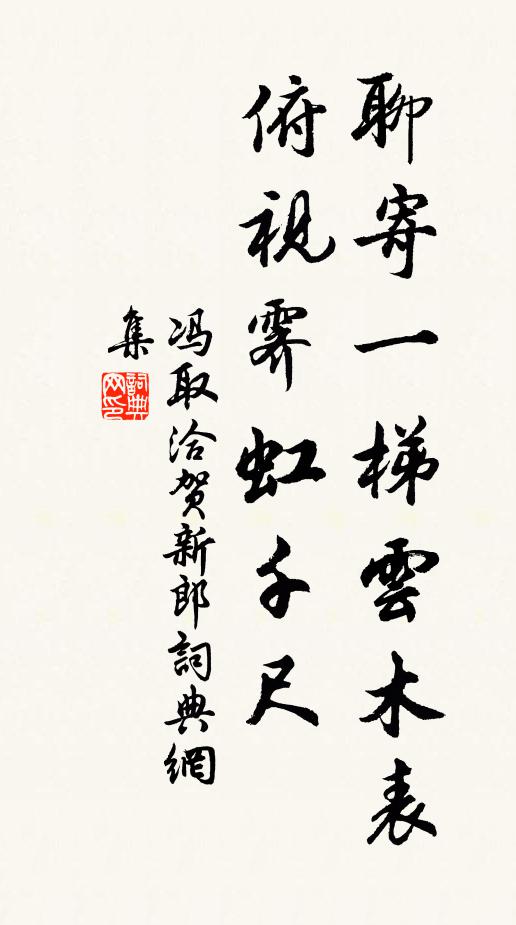 聊寄一梯雲木表
俯視霽虹千尺
冯取洽贺新郎詞典網
集
詞典
网印